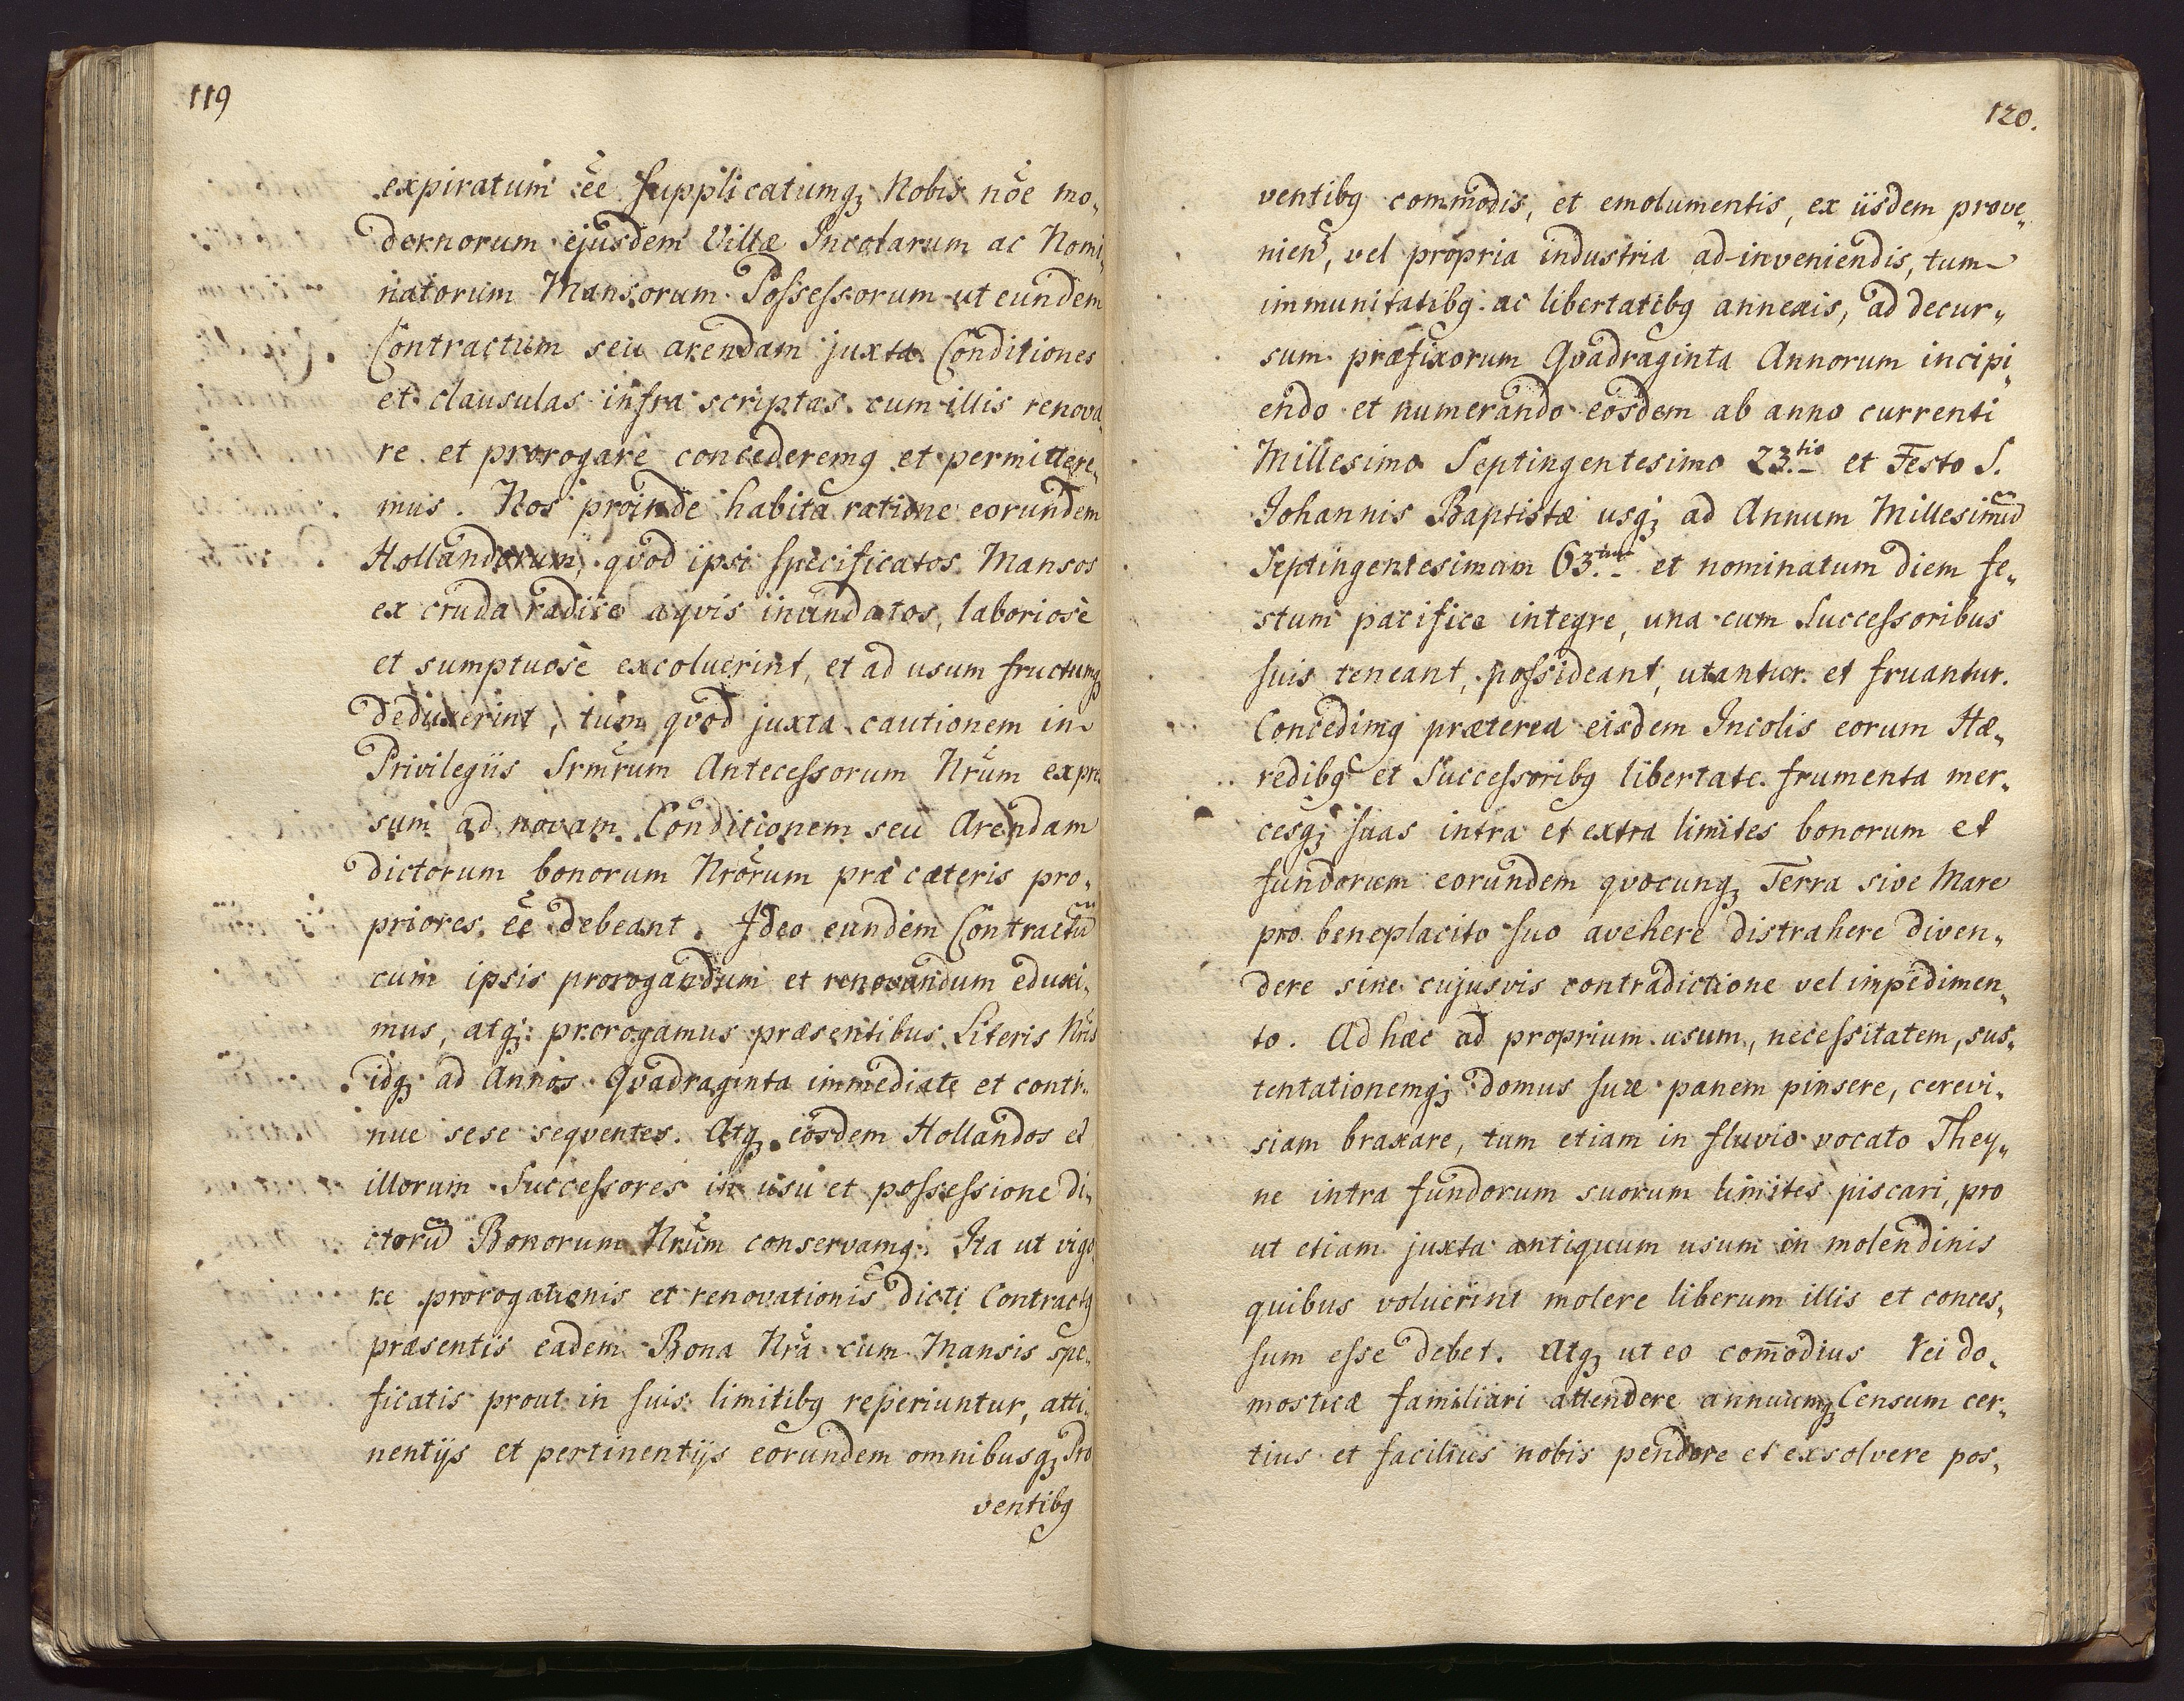 119
expiratum ee͂ supplicatumq; Nobis no͂e mo„
dernorum ejusdem Villæ Incolarum ac Nomi„
natorum Mansorum Possessorum ut eundem
Contractum seu arendam juxta Conditiones
et clausulas infra scriptas cum illis renova„
re et prorogare concederemq et permittere„
mus. Nos proinde habita ratione eorundem
Hollandorum, qvod ipsi specificatos Mansos
ex cruda radice aqvis inundatos, laboriosè
et sumptuosè excoluerint, et ad usum fructumq;
deduxerint, tum qvod juxta cautionem in
Privilegiis Srm͂rum Antecessorum Nr͂um expres„
sum ad novam Conditionem seu Arendam
dictorum bonorum Nr͂orum præ cæteris pro„
priores ee͂ debeant. Ideo eundem Contractu͂
cum ipsis prorogandum et renovandum eduxi„
mus, atq; prorogamus præsentibus Literis Nr͂is
idq; ad Annos Qvadraginta immediate et conti„
nue sese seqventes. Atq; eosdem Hollandos et
illorum Successores in usu et possessione di„
ctoru͂ Bonorum Nr͂um conservamq. Ita ut vigo„
re prorogationis et renovationis dicti Contractq
præsentis eadem Bona Nr͂a cum Mansis spe„
ficatis prout in suis limitibq reperiuntur, atti„
nentijs et pertinentijs eorundem omnibusq; Pro
ventibq
120.
ventibq commodis, et emolumentis, ex iisdem prove„
nien͂, vel propria industria ad-inveniendis, tum
immunitatibq ac libertatibq annexis, ad decur„
sum præfixorum Qvadraginta Annorum incipi„
endo et numerando eosdem ab anno currenti
Millesimo Septingentesimo 23.tio et Festo S.
Johannis Baptistæ usq; ad Annum Millesimu͂
Septingentesimum 63.tium et nominatum diem fe„
stum pacifice integre, una cum Successoribus
suis teneant, possideant, utantur et fruantur.
Concedimq præterea eisdem Incolis eorum Hæ„
redibq et Successoribq libertate frumenta mer„
cesq; suas intra et extra limites bonorum et
fundorum eorundem qvocunq; Terra sive Mare
pro beneplacito suo avehere distrahere diven„
dere sine cujusvis contradictione vel impedimen„
to. Ad hæc ad proprium usum, necessitatem, sus„
tentationemq; domus suæ panem pinsere, cerevi„
siam braxare, tum etiam in fluvio vocato They„
ne intra fundorum suorum limites piscari, pro
ut etiam juxta antiquum usum in molendinis
quibus voluerint molere liberum illis et conces„
sum esse debet. Atq; ut eo com̄odius rei do„
mesticæ familiari attendere annuumq; Censum cer„
tius et facilius nobis pendere et exsolvere pos„